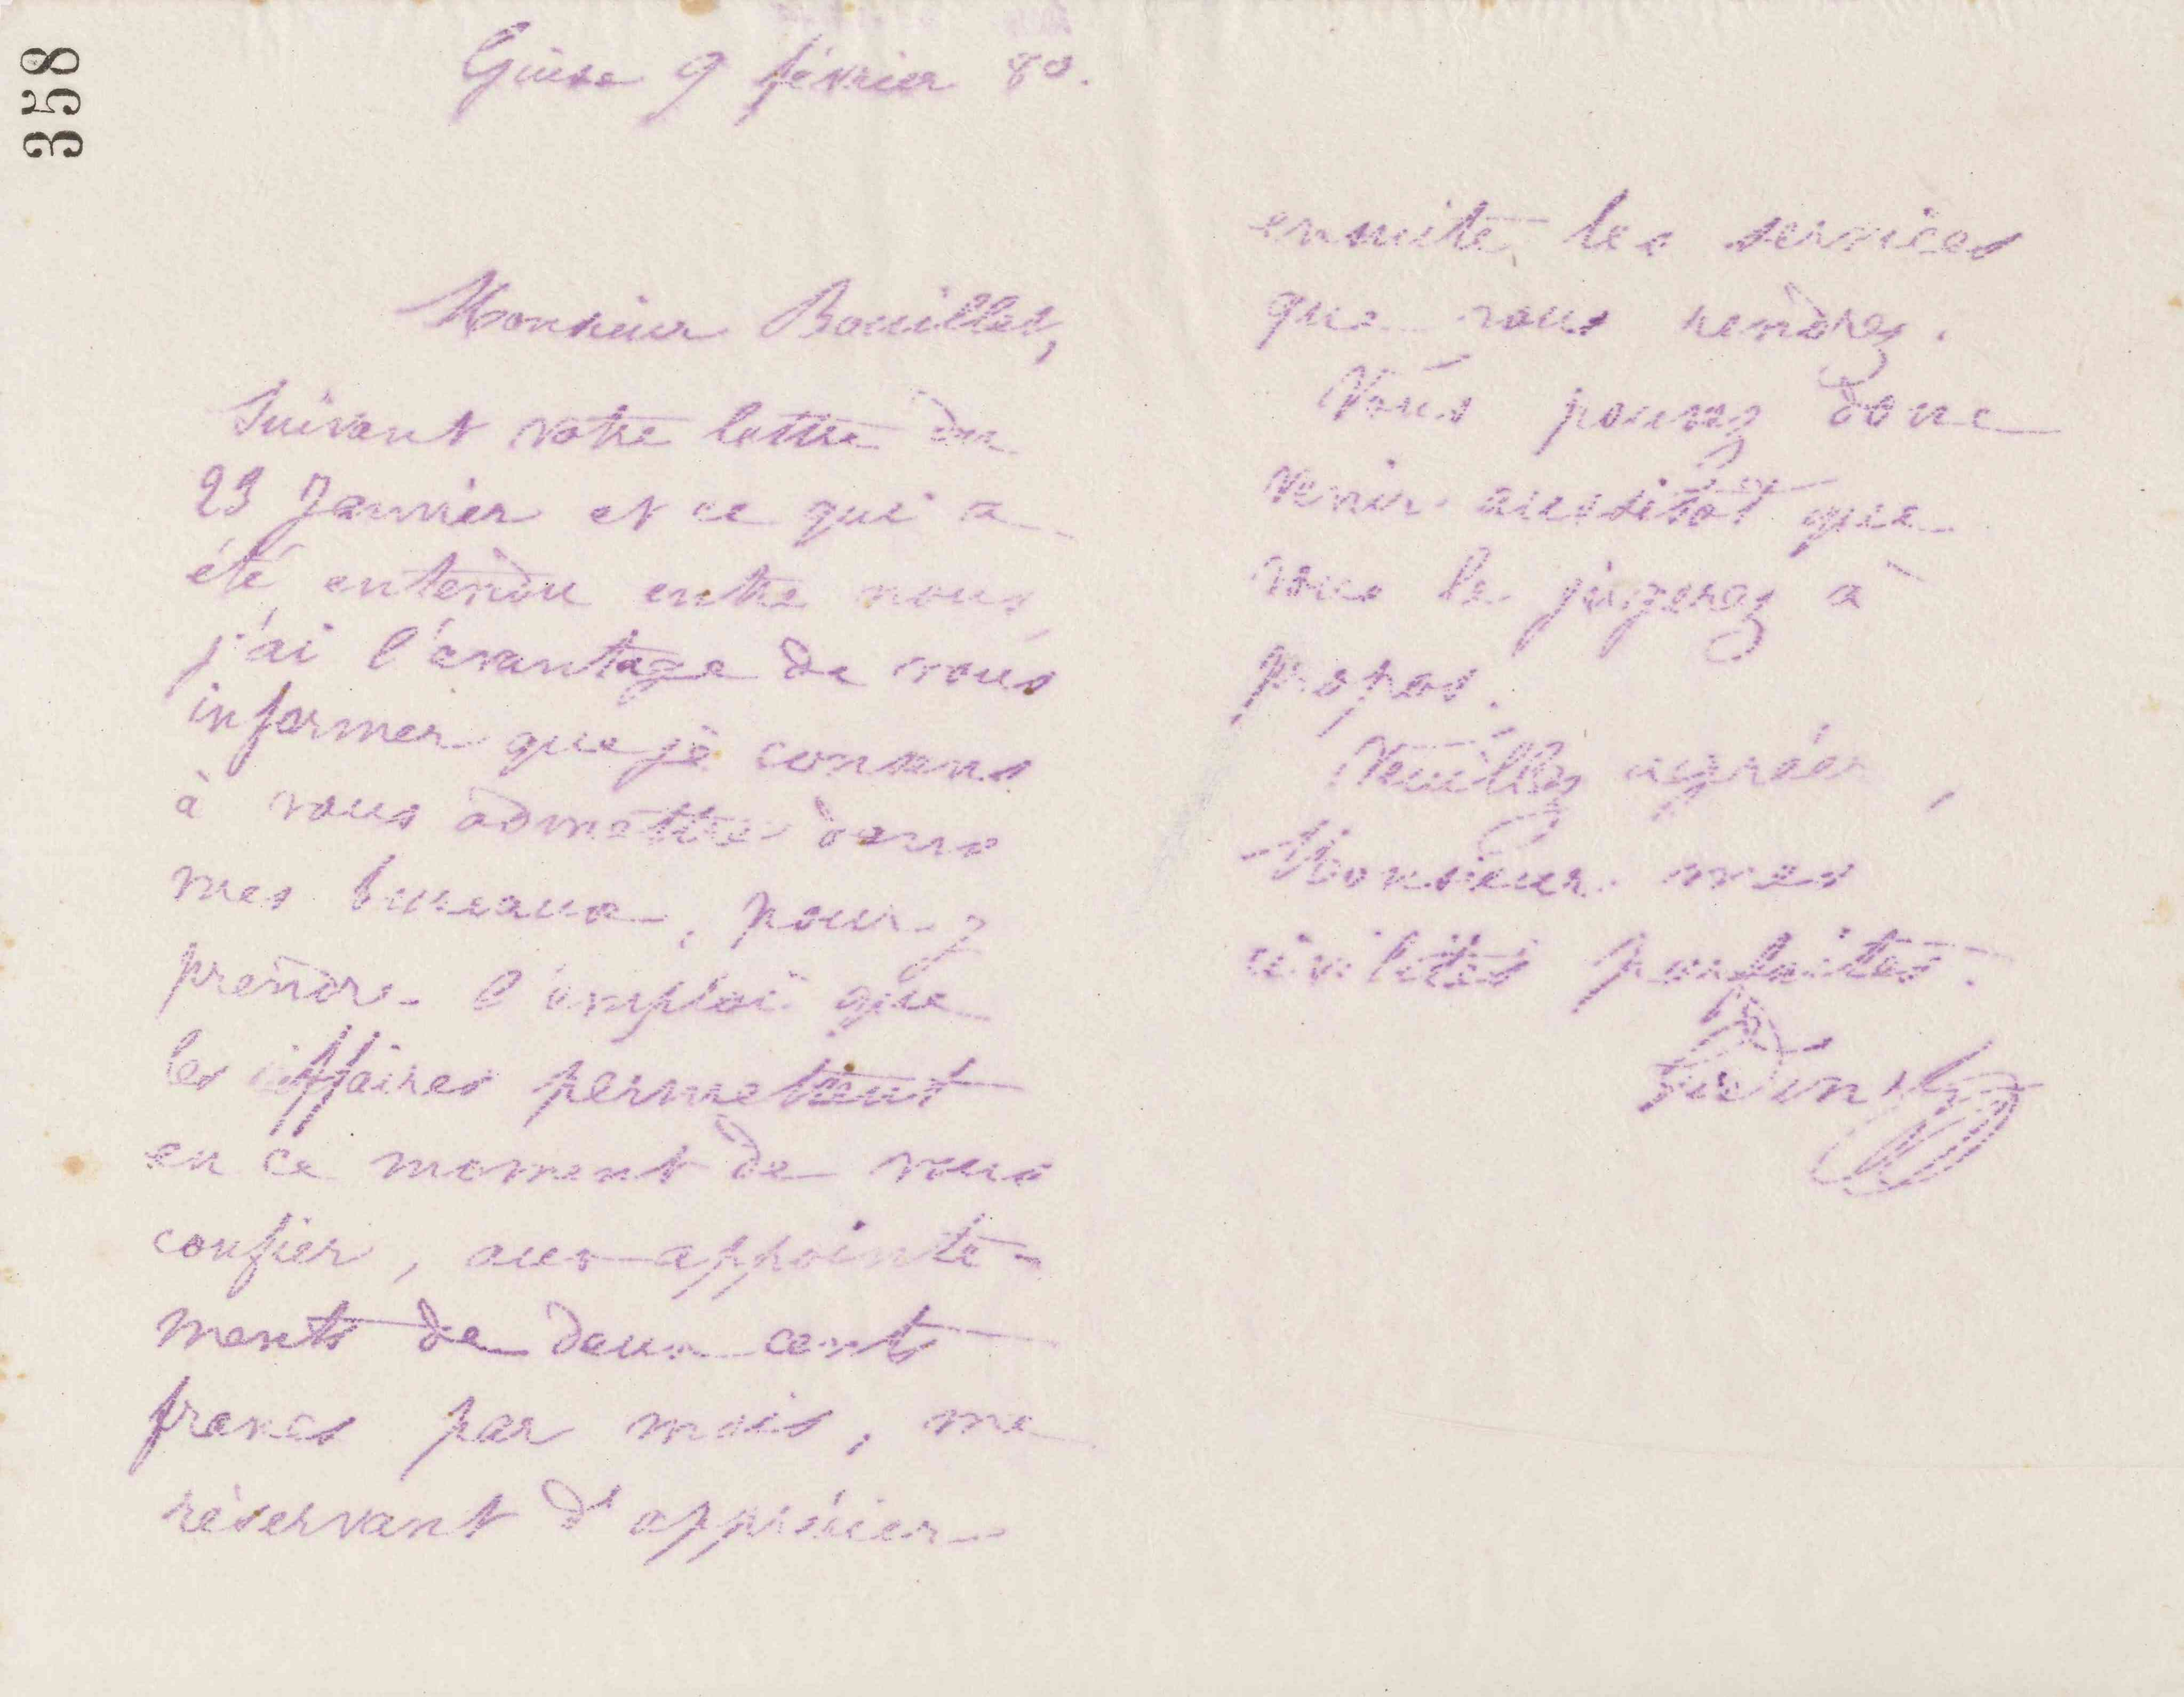 358
Guise 9 février 80.
Monsieur Bouillet,
Suivant votre lettre du
23 Janvier et ce qui a
été entendu entre nous,
j'ai l'avantage de vous
informer que je consens
à vous admettre dans
mes bureaux, pour y
prendre l'emploi que
les affaires permettent
en ce moment de vous
confier, aux appointe-
ments de deux cents
francs par mois, me
réservant d'apprécier
ensuite les services
que vous rendrez.
Vous pouvez donc
venir aussitôt que
vous le jugerez à
propos.
Veuillez agréer,
Monsieur mes
civilités parfaites.
Godin